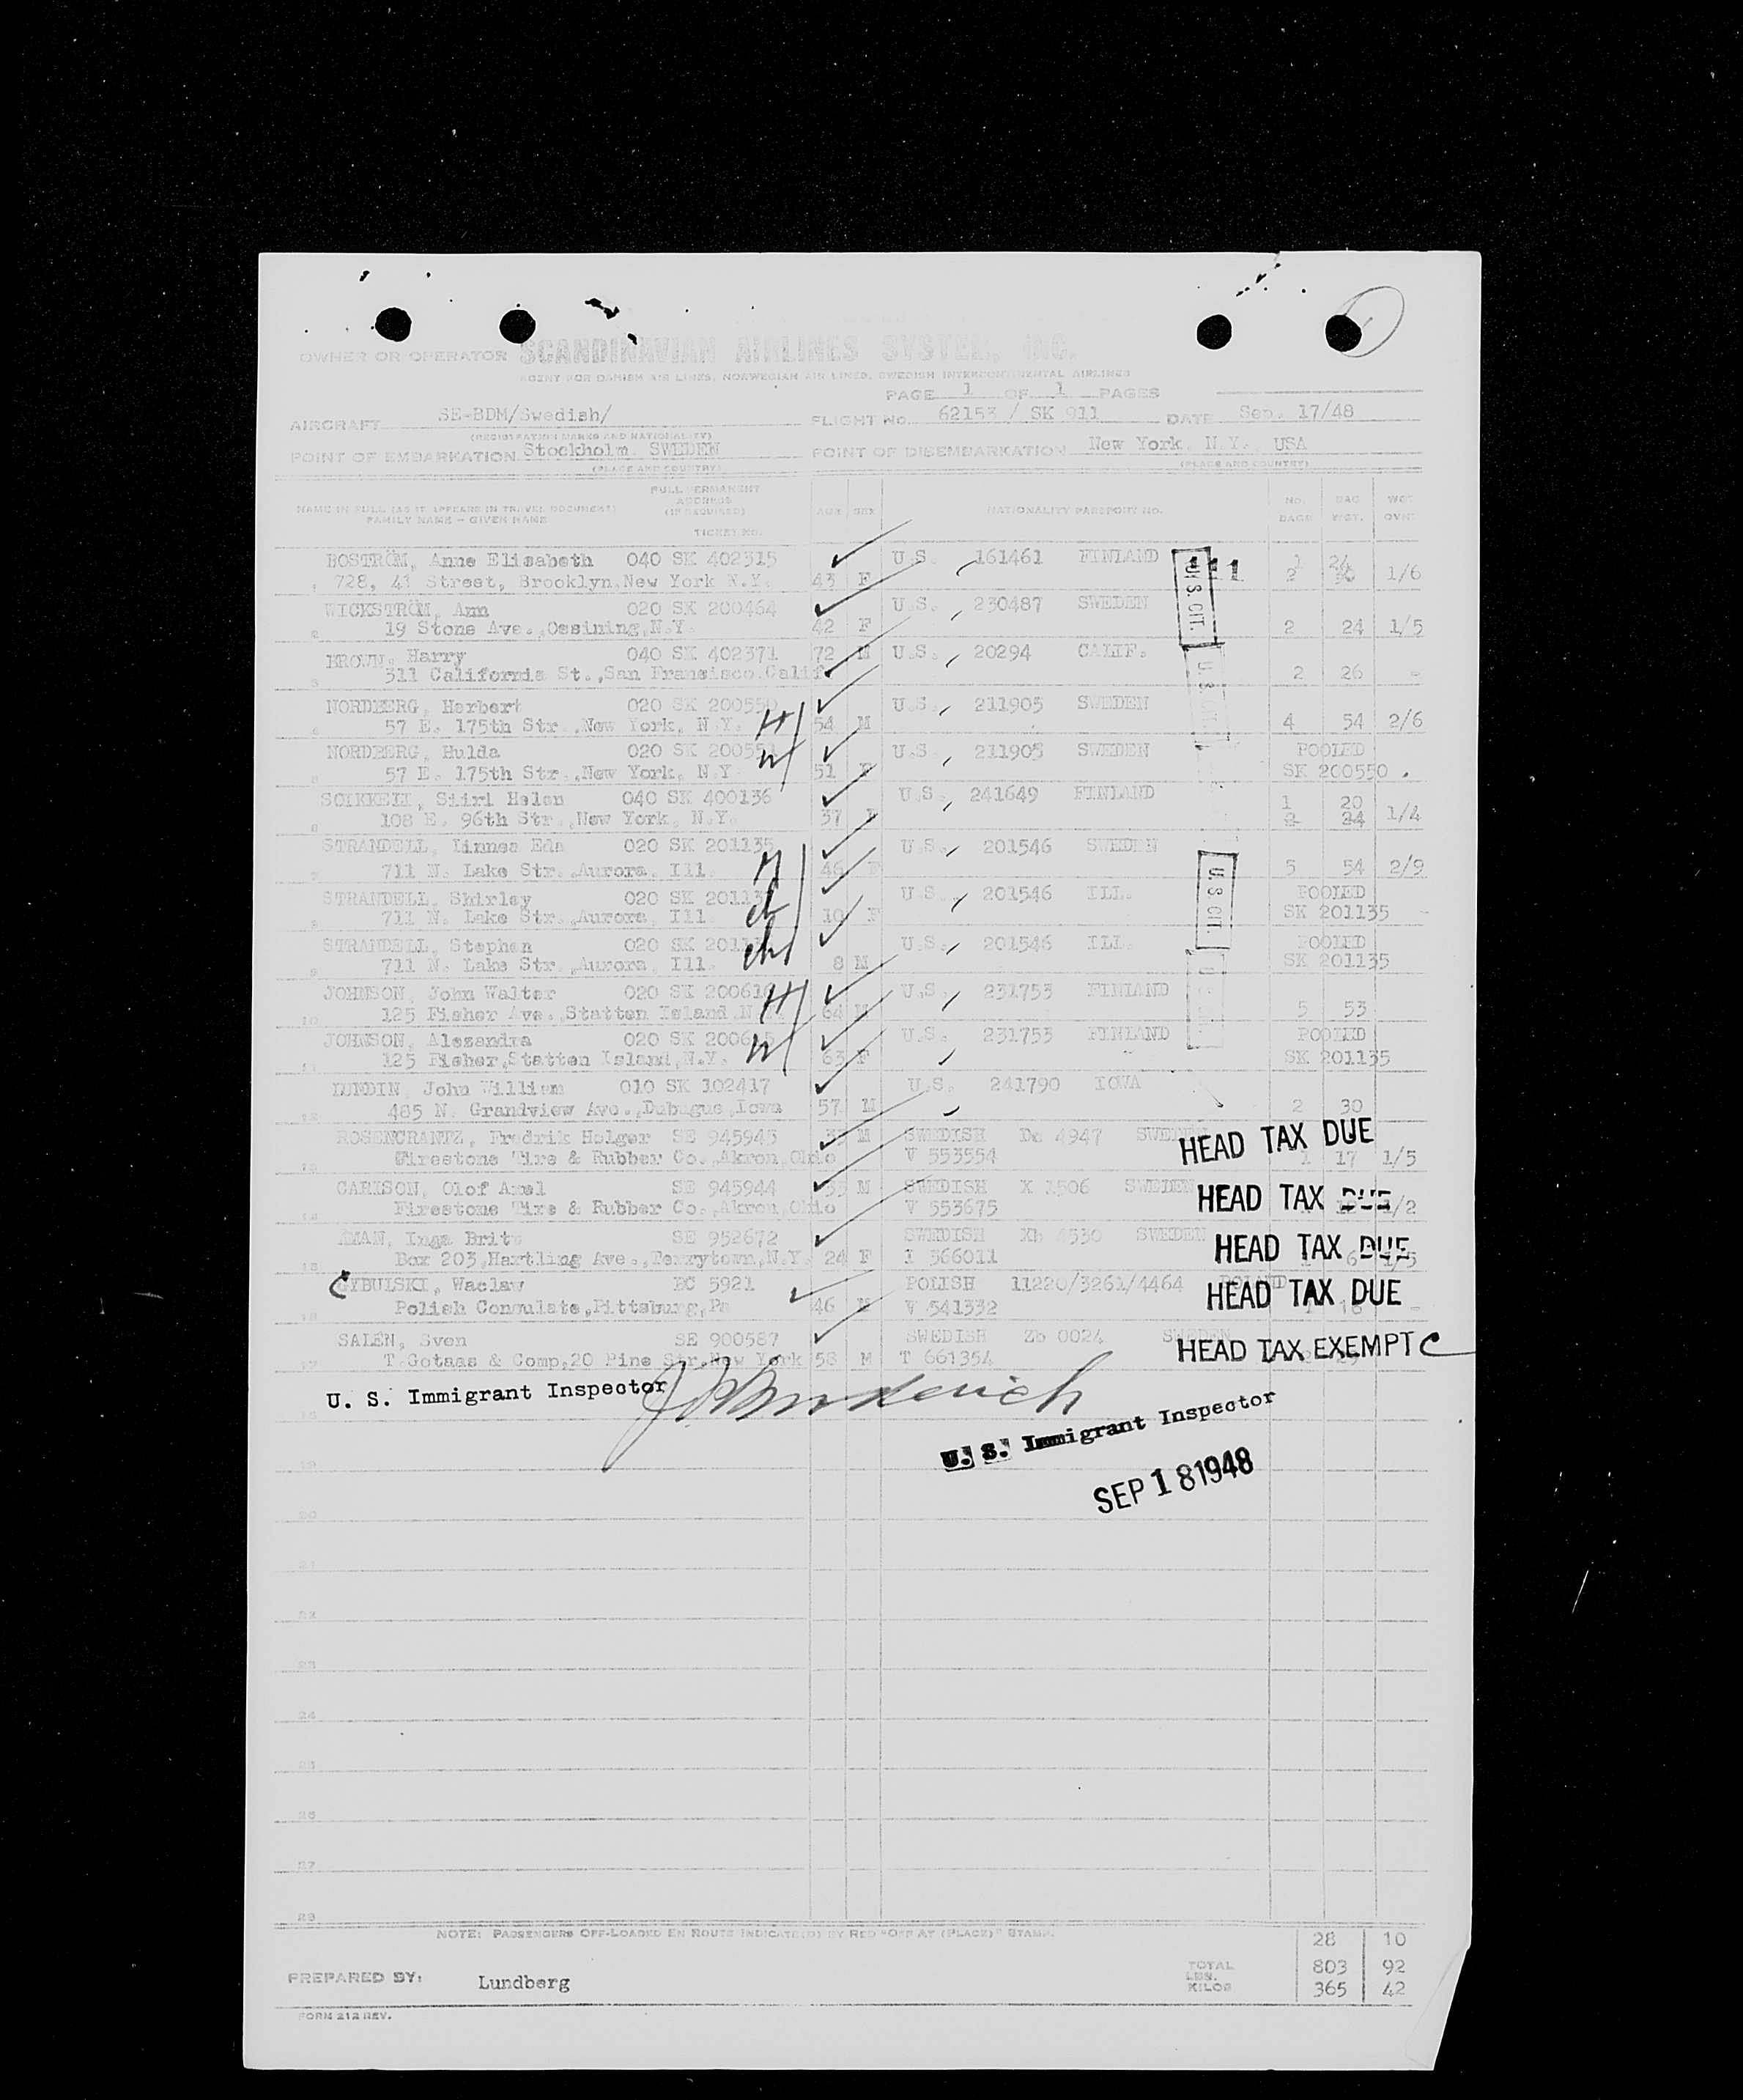 OWNER OR OPERATOR SCANDINAVIAN AIRLINES SYSTEM, INC.
AGENT FOR DANISH AIR LINES, NORWEGIAN AIR LINES, SWEDISH INTERCONTINENTAL AIRLINES
PAGE 1 OF 1 PAGES
AIRCRAFT SE-BDM/Swedish/ FLIGHT No. 62153 / SK 911 DATE Sep. 17/48
(REGISTRATION MARKS AND NATIONALITY)
POINT OF EMBARKATION Stockholm. SWEDEN POINT OF DISEMBARKATION New York. N.Y. USA
(PLACE AND COUNTRY) (PLACE AND COUNTRY)
NAME IN FULL (AS IT APPEARS IN TRAVEL DOCUMENT) FAMILY NAME – GIVEN NAME FULL PERMANENT ADDRESS (IF REQUIRED) TICKET NO. AGE SEX NATIONALITY PASSPORT NO. No. BAGS BAG WGT. WGT OVR
BOSTRÖM, Anne Elisabeth 040 SK 402315 U.S. 161461 FINLAND 1 24
1 728, 41 Street, Brooklyn.New York N.Y. 43 F 2 1/6
WICKSTRÖM, Ann 020 SK 200464 U.S. 230487 SWEDEN
2 19 Stone Ave.,Ossining,N.Y 42 F 2 24 1/5
BROWN, Harry 040 SK 402371 72 M U.S. 20294 CALIF.
3 311 California St.,San Francisco.Calif. 2 26 -
NORDBERG, Herbert 020 SK 200550 U.S. 211905 SWEDEN
4 57 E. 175th Str.,New York, N.Y. H 54 M 4 54 2/6
NORDBERG, Hulda 020 SK 200551 U.S. 211905 SWEDEN POOLED
5 57 E. 175th Str.,New York, N.Y W 51 F SK 200550
SOIKKELI, Siiri Helen 040 SK 400136 U.S. 241649 FINLAND 1 20
6 108 E. 96th Str.,New York, N.Y. 37 F 2 34 1/4
STRANDELL, Linnea Eda 020 SK 201135 U.S. 201546 SWEDEN
7 711 N. Lake Str.,Aurora, Ill. 46 F 5 54 2/9
STRANDELL, Shirley 020 SK U.S. 201546 ILL. POOLED
8 711 N. Lake Str.,Aurora, Ill 10 F SK 201135 -
STRANDELL, Stephen 020 SK U.S. 201546 ILL. POOLED
9 711 N. Lake Str.,Aurora, Ill. ch 8 M SK 201135
JOHNSON, John Walter 020 SK U.S. 231753 FINLAND
10 125 Fisher Ave. Statten Island N. H 64 M 5 53
JOHNSON, Alexandra 020 SK U.S. 231753 FINLAND POOLED
11 125 Fisher,Statten Island,N.Y. W 63 F SK 201135
LUNDIN, John William 010 SK 102417 U.S. 241790 IOWA
12 485 N. Grandview Ave.,Dubugue,Iowa 57 M 2 30
ROSENCRANTZ, Fredrik Holger SE 945945 M SWEDISH De 4947 SWEDEN HEAD TAX DUE
13 Firestone Tire & Rubber Co.,Akron,Ohio V 553554 1 17 1/5
CARLSON, Olof Axel SE 945944 M SWEDISH X 1506 SWEDEN HEAD TAX DUE
14 Firestone Tire & Rubber Co.,Akron,Ohio V 553675 1/2
ÅMAN, Inga Britt SE 952672 SWEDISH Xb 4530 SWEDEN HEAD TAX DUE
15 Box 203,Hartling Ave.,Terrytown,N.Y. 24 F I 366011 1/5
CYBULSKI, Waclaw BC 5921 POLISH 11220/3261/4464 POLAND HEAD TAX DUE
16 Polish Consulate,Pittsburg,Pa 46 M V 541332 -
SALÉN, Sven SE 900587 SWEDISH Zb 0024 SWEDEN HEAD TAX EXEMPT C
17 T.Gotaas & Comp,20 Pine Str.New York 58 M T 661354
U.S. CIT.
U.S. CIT.
U.S. CIT.
U. S. Immigrant Inspector
U. S. Immigrant Inspector
SEP 18 1948
18
19
20
21
22
23
24
25
26
27
28
NOTE: PASSENGERS OFF-LOADED EN ROUTE INDICATE(D) BY RED "OFF AT (PLACE)" STAMP.
28 10
TOTAL LBS. 803 92
PREPARED BY: Lundberg KILOS 365 42
FORM 212 REV.